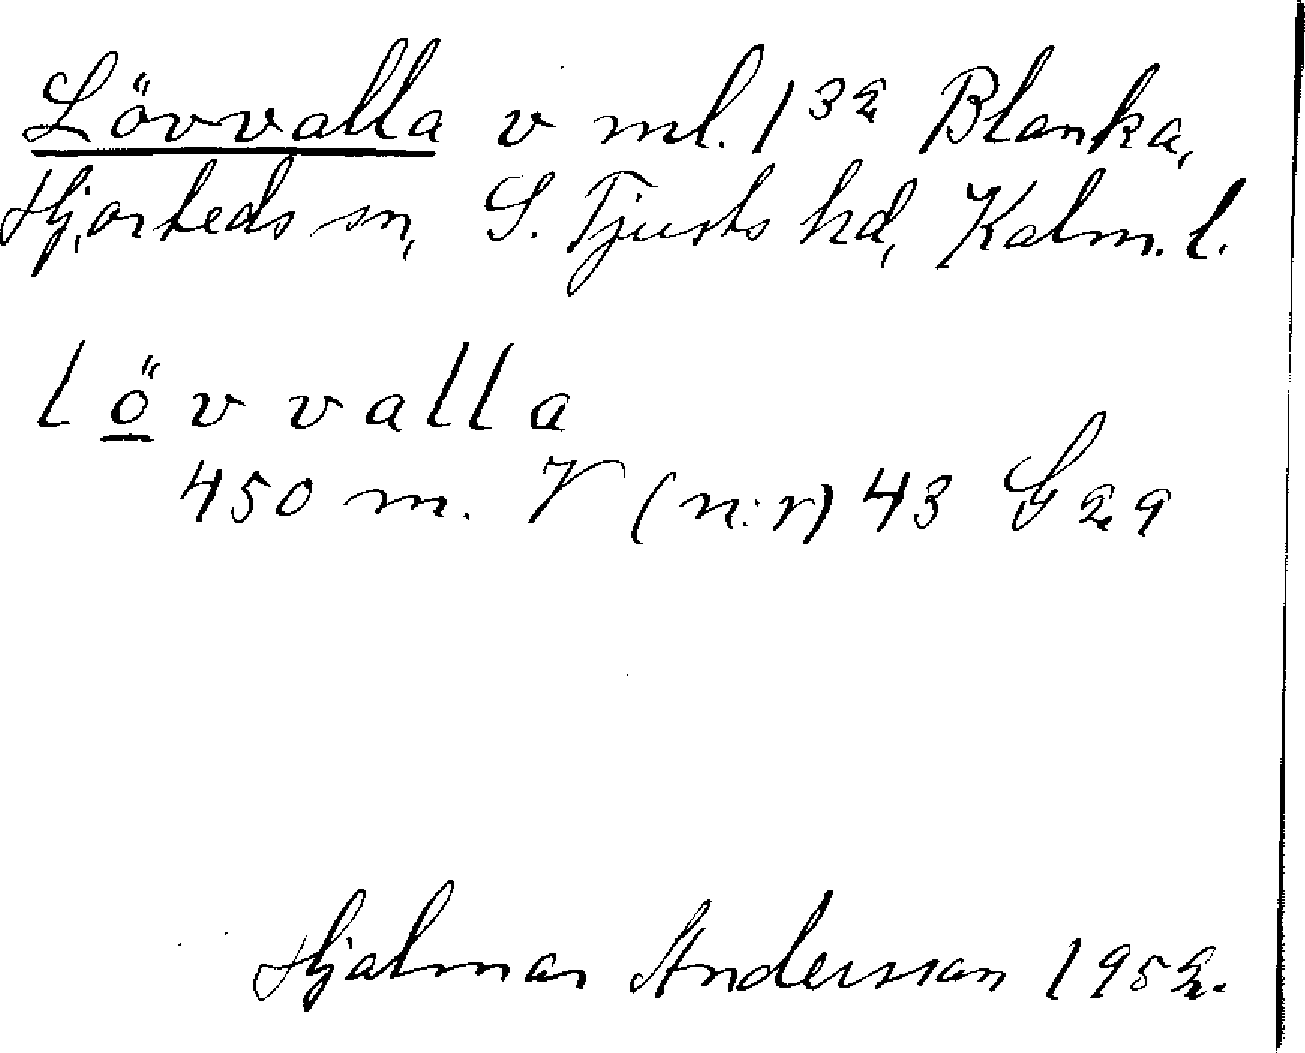 Lövvalla v ml. 1³² Blanka,
Hjorteds sn, S. Tjusts hd, Kalm. l.
lövvalla
450 m. V (n:r) 43 G 29
Hjalmar Andersson 1952.